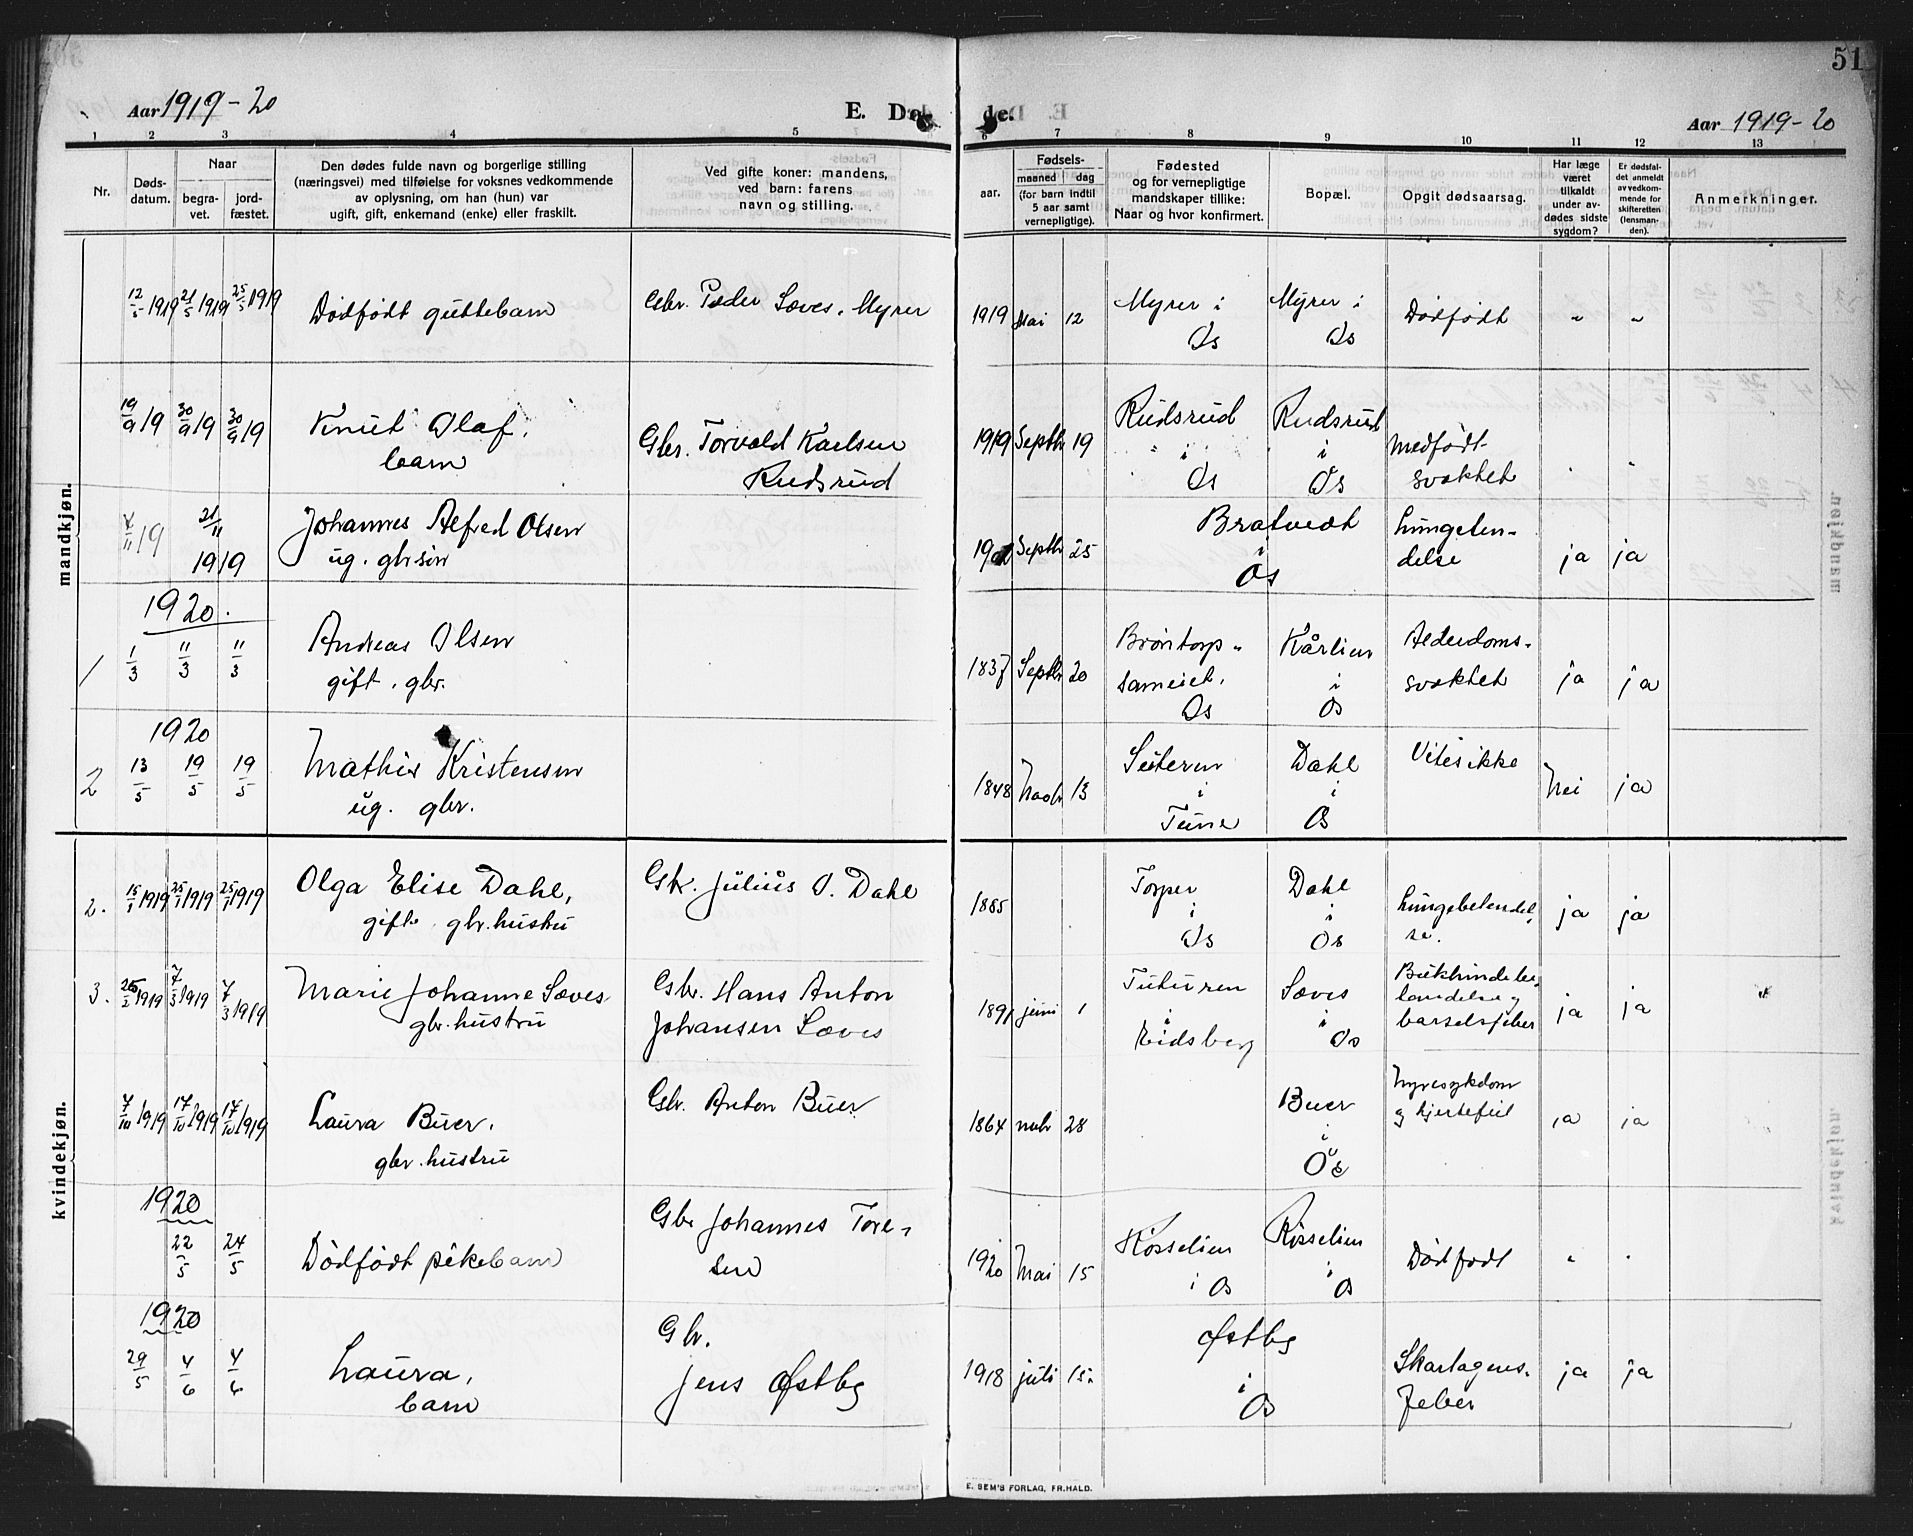 51
Aar 1919-20
E. Dø
de.
Aar 1919-20
1 2 3 4 5 6 7 8 9 10 11 12 13
Nr.
Døds-
datum.
Naar
begra-
vet.
jord-
fæstet.
Den dødes fulde navn og borgerlige stilling
(næringsvei) med tilføielse for voksnes vedkommende
av oplysning, om han (hun) var
ugift, gift, enkemand (enke) eller fraskilt.
Ved gifte koner: mandens,
ved barn: farens
navn og stilling.
aar.
Fødsels-
maaned dag
(for barn indtil
5 aar samt
vernepligtige).
Fødested
og for vernepligtige
mandskaper tillike:
Naar og hvor konfirmert.
Bopæl.
Opgit dødsaarsag.
Har læge
været
tilkaldt
under av-
dødes sidste
sygdom?
Er dødsfal-
det anmeldt
av vedkom-
mende for
skifteretten
(lensman-
den).
Anmerkninger.
mandkjøn.
12/5 1919 21/5 1919 25/5 1919
Dødfødt guttebarn
Gbr. Peder Sæves, Myrer
1919 Mai 12
Myrer i
Os
Myrer i
Os
Dødfødt
" "
19/9 19 30/9 19 30/9 19
Knut Olaf,
barn
Gbr. Torvald Karlsen
Rudsrud
1919 Septbr 19
Rudsrud
i
Os
Rudsrud
i
Os
medfødt
svakhet
7/11 19 21/11
1919
Johannes Alfred Olsen
ug. gbr søn
Septbr 25
Bratvedt
i
Os
Lungeten-
delse
ja ja
1920.
1 1/3 11/3 11/3
Andreas Olsen
gift. gbr.
1837 Septbr 20
Brøntorp-
sameiet,
Os
Kårlien
i
Os
Alderdoms-
svakhet
ja ja
1920
2 13/5 19/5 19/5
Mathis Kristensen
ug. gbr.
1848 13
i
Tune
Dahl
i
Os
Vites ikke
Nei ja
kvindekjøn.
2. 15/1 1919 25/1 1919 25/1 1919
Olga Elise Dahl,
gift gbr. hustru
Gbr. Julius O. Dahl
1885
Torper
i
Os
Dahl
i
Os
Lungebetendel,
se.
ja ja
3. 26/2 1919 7/3 1919 7/3 1919
Marie Johanne Sæves
gbr. hustru
Gbr. Hans Anton
Johansen Sæves
1891 juni 1
i
Eidsberg
Sæves
i
Os
Bukhindebe-
tændelse og
barselsfeber
ja ja
7/10 1919 17/10 1919 17/10 1919
Laura Buer,
gbr. hustru
Gbr. Anton Buer
1864 28
Buer
i
Os
Nyresykdom
og hjertefeil
ja ja
1920
22/5 24/5
Dødfødt pikebarn
Gbr Johannes Tore-
sen
1920 Mai 15
Kosselien
i Os
Kosselien
i
Os
Dødfødt
1920
29/5 4/6 4/6
Laura,
barn
Gbr.
Jens Østby
1918 juli 15.
Østby
i
Os
Skarlagens-
feber
ja ja
E. SEM'S FORLAG, FR.HALD.